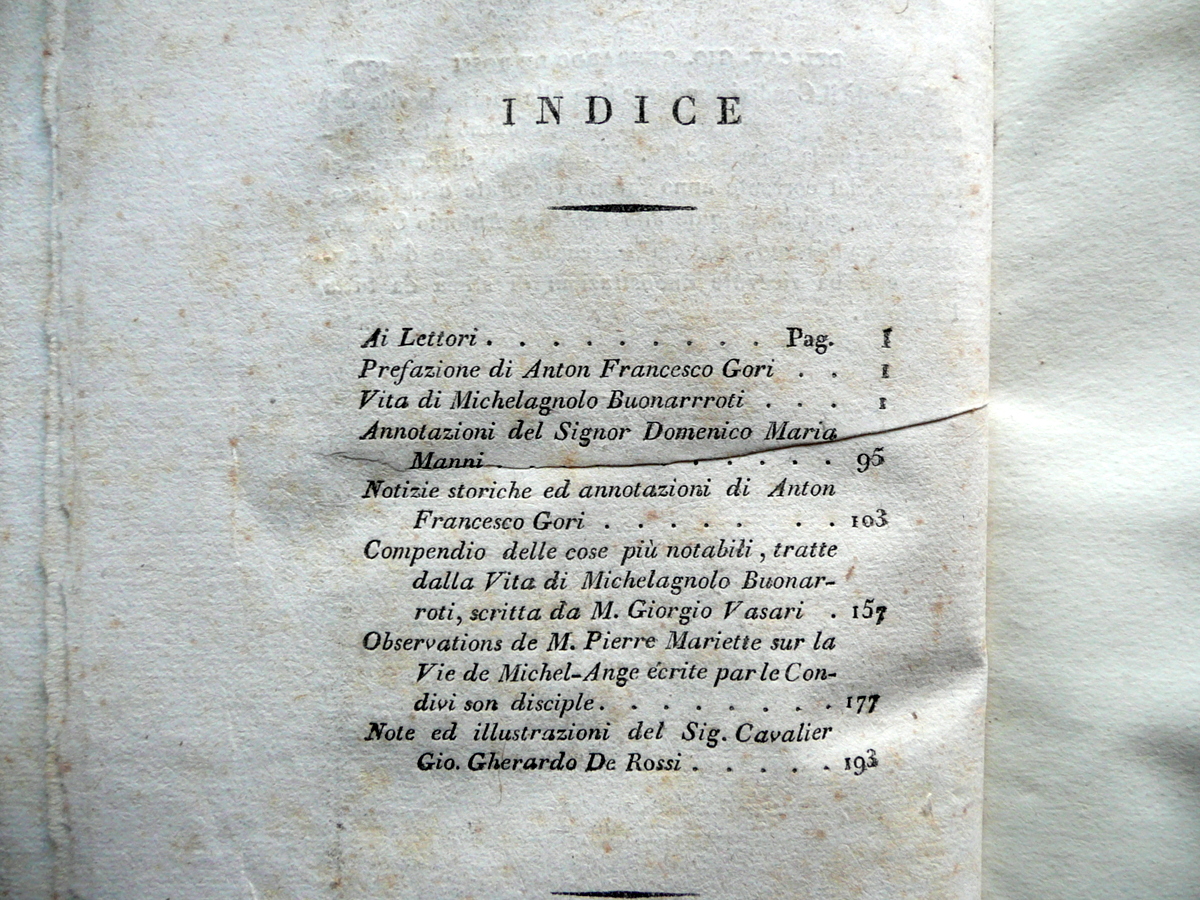 INDICE
Ai Lettori . . . . . . . . . . Pag. I
Prefazione di Anton Francesco Gori . . I
Vita di Michelagnolo Buonarrroti . . . 1
Annotazioni del Signor Domenico Maria
Manni . . . . . . 95
Notizie storiche ed annotazioni di Anton
Francesco Gori . . . . . . . 103
Compendio delle cose più notabili , tratte
dalla Vita di Michelagnolo Buonar-
roti, scritta da M. Giorgio Vasari . 157
Observations de M. Pierre Mariette sur la
Vie de Michel-Ange écrite par le Con-
divi son disciple . . . . . . . . 177
Note ed illustrazioni del Sig. Cavalier
Gio. Gherardo De Rossi . . . . . 193